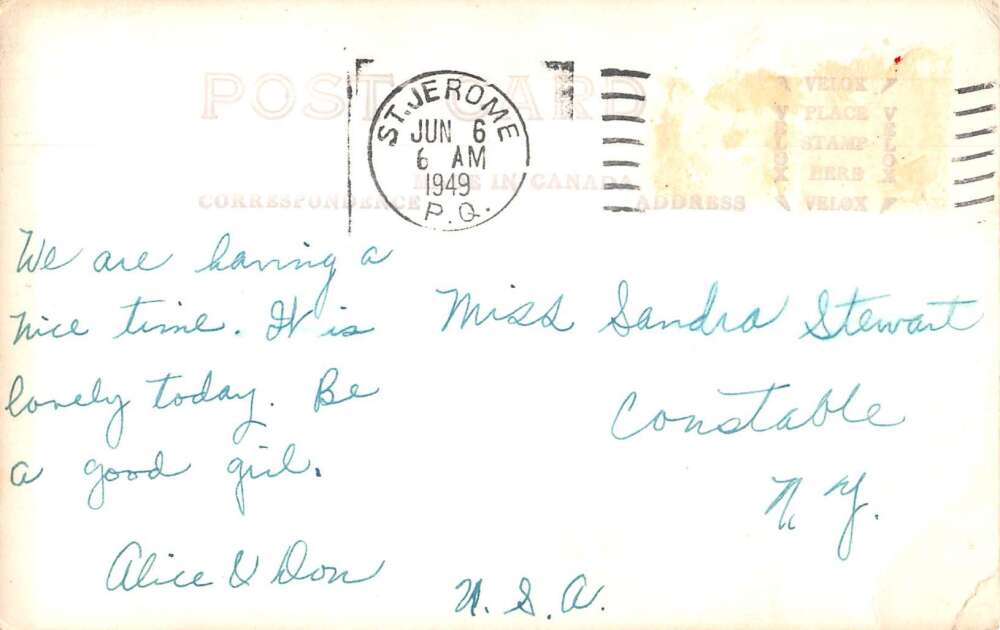 POST CARD
ST. JEROME
JUN 6
6 AM
1949
P.Q.
MADE IN CANADA
CORRESPONDENCE
ADDRESS
VELOX
PLACE
STAMP
HERE
VELOX
VELOX
VELOX
We are having a
nice time. It is
lovely today. Be
a good girl.
Alice & Don
Miss Sandra Stewart
Constable
N.Y.
U.S.A.